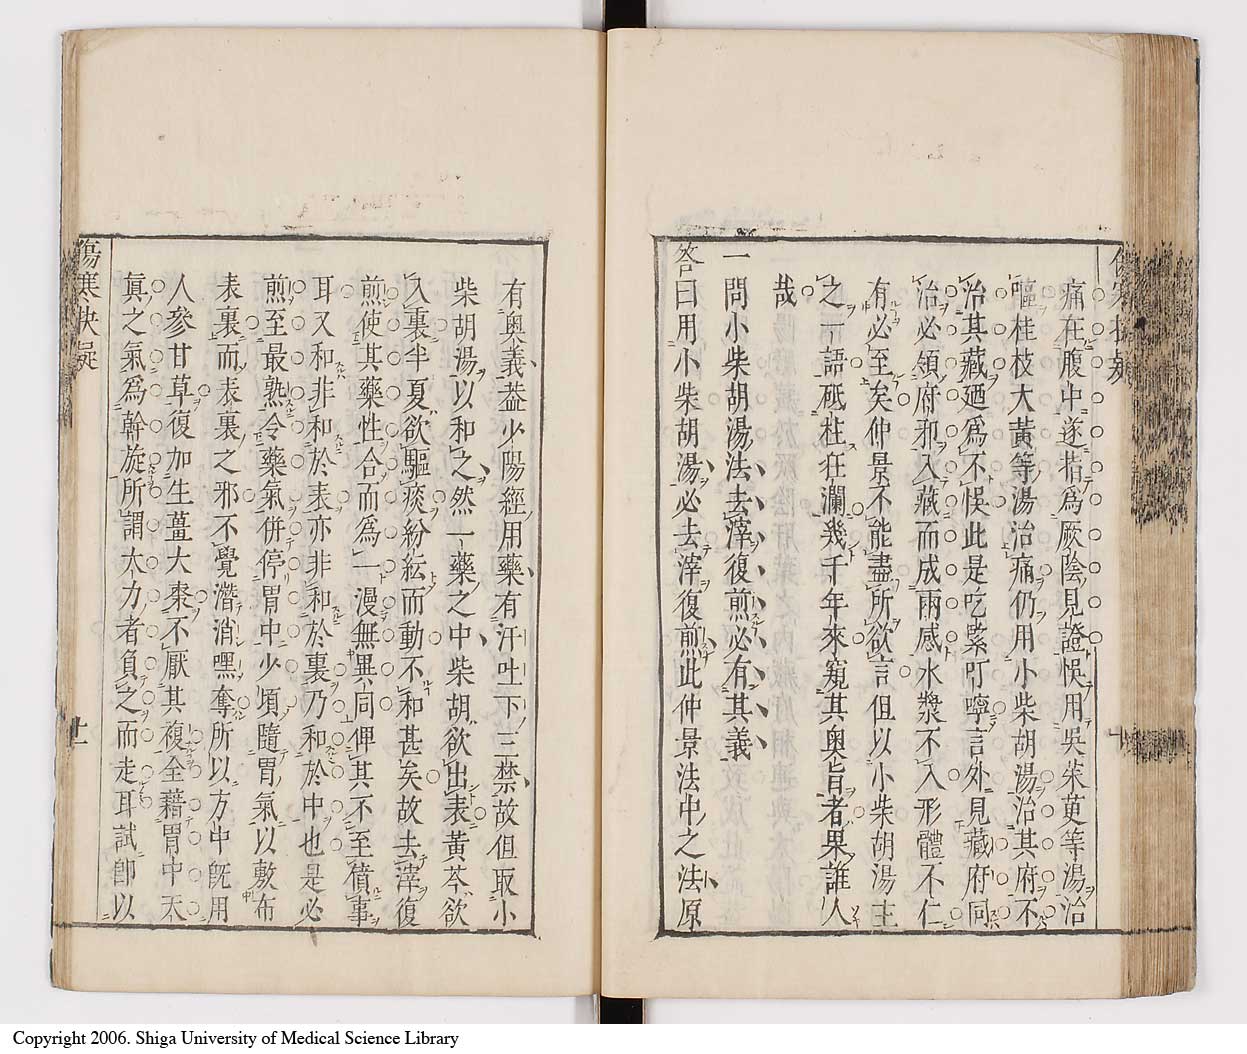 痛在腹中遂指爲厥陰見證悞用吳茱萸等湯治
嘔桂枝大黃等湯治痛仍用小柴胡湯治其府不
治其藏廼爲不悞此是吃緊叮嚀言外見藏府同
治必領府邪入藏而成兩感水漿不入形體不仁
有必至矣仲景不能盡所欲言但以小柴胡湯主
之一語砥柱狂瀾幾千年來窺其奧旨者果誰人
哉
一問小柴胡湯法去滓復煎必有其義
答曰用小柴胡湯必去滓復煎此仲景法中之法原
有奧義葢少陽經用藥有汗吐下三禁故但取小
柴胡湯以和之然一藥之中柴胡欲出表黃芩欲
入裏半夏欲驅痰紛紜而動不和甚矣故去滓復
煎使其藥性合而爲一漫無異同俾其不至僨事
耳又和非和於表亦非和於裏乃和於中也是必
煎至最熟令藥氣併停胃中少頃隨胃氣以敷布
表裏而表裏之邪不覺潛消嘿奪所以方中旣用
人參甘草復加生薑大棗不厭其複全藉胃中天
眞之氣爲幹旋所謂大力者負之而走耳試卽以
傷寒抉疑
Copyright 2006. Shiga University of Medical Science Library